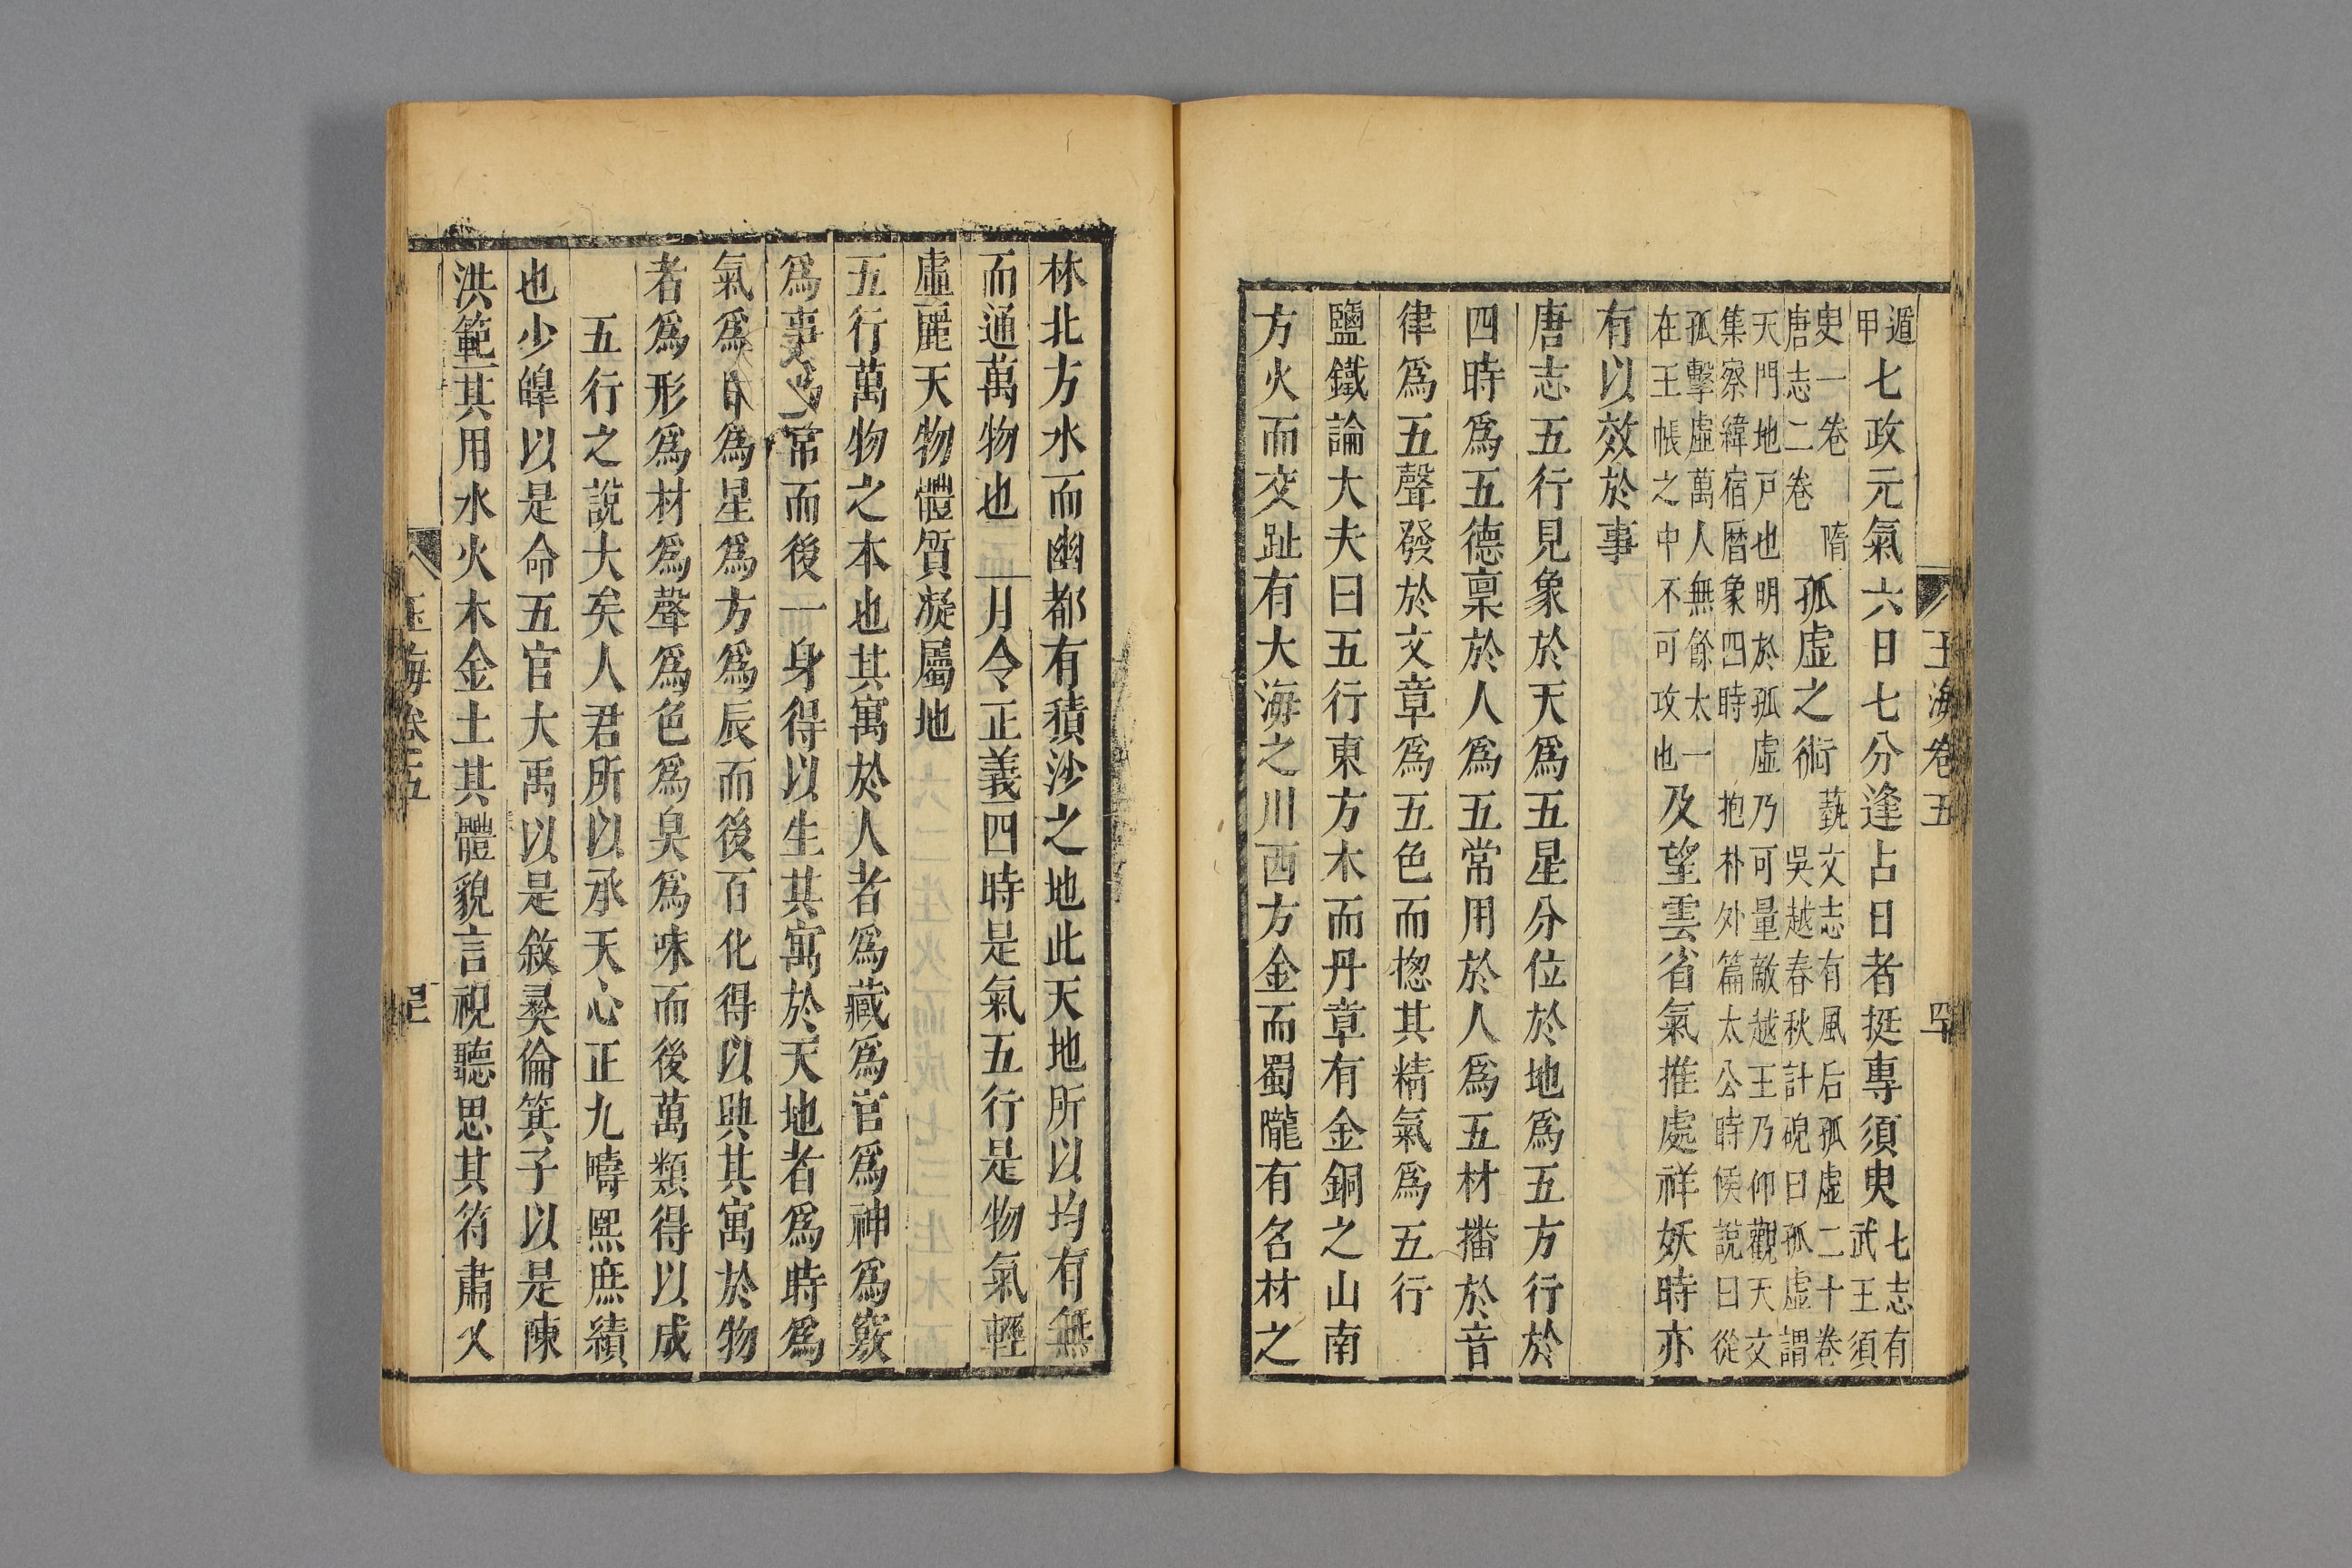 玉海卷五 四十
遁甲七政元氣六日七分逢占日者挺專須臾七志有武王須
史一卷隋唐志二卷孤虛之術蓺文志有風后孤虛二十卷吳越春秋計硯曰孤虛謂
天門地戸也明於孤虛乃可量敵越王乃仰觀天文集察緯宿曆象四時抱朴外篇太公時候說曰從
孤擊虛萬人無餘太一在王帳之中不可攻也及望雲省氣推處祥妖時亦
有以效於事
唐志五行見象於天爲五星分位於地爲五方行於
四時爲五德稟於人爲五常用於人爲五材播於音
律爲五聲發於文章爲五色而揔其精氣爲五行
鹽鐵論大夫曰五行東方木而丹章有金銅之山南
方火而交趾有大海之川西方金而蜀隴有名材之
林北方水而幽都有積沙之地此天地所以均有無
而通萬物也 月令正義四時是氣五行是物氣輕
虛麗天物體質凝屬地
五行萬物之本也其寓於人者爲藏爲官爲神爲竅
爲事爲常而後一身得以生其寓於天地者爲時爲
氣爲日爲星爲方爲辰而後百化得以興其寓於物
者爲形爲材爲聲爲色爲臭爲味而後萬類得以成
五行之說大矣人君所以承天心正九疇熙庶績
也少皥以是命五官大禹以是敘彝倫箕子以是陳
洪範其用水火木金土其體貌言視聽思其符肅乂
玉海卷五